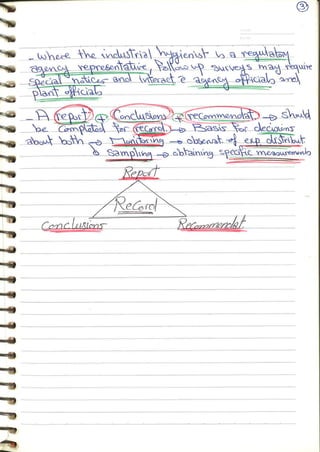 3
- Where the industrial hygienist is a regulatory
agency representative, follow up surveys may require
special notices and interact c̄ agency officials and
plant officials
- A report + Conclusions + recommendat → should
be completed for record → Basis for decisions
about both → Monitoring → observat. of exp distribut
& Sampling → obtaining specific measurements
Report
Record
Conclusions Recommendat.